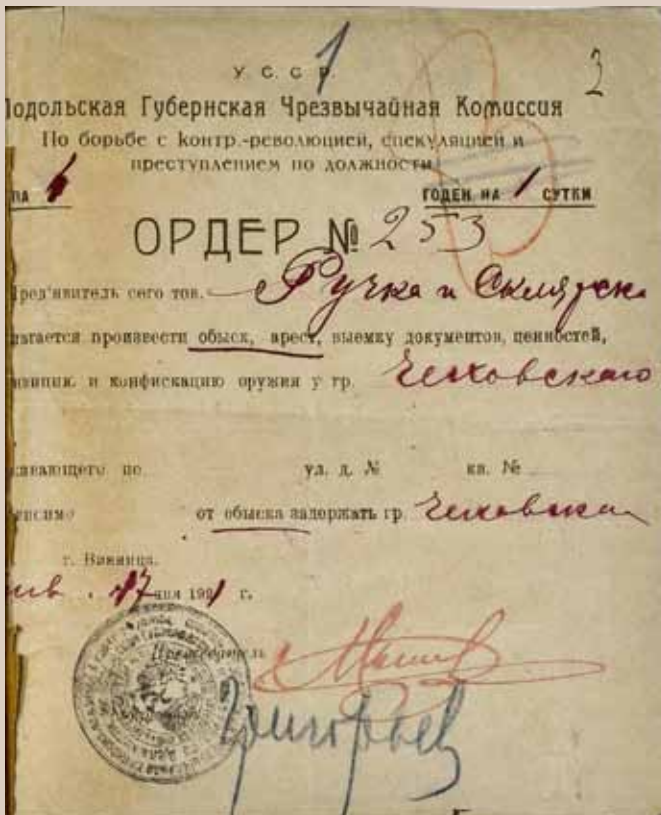 1 3
У. С. С. Р.
Подольская Губернская Чрезвычайная Комиссия
По борьбе с контр.-революцией, спекуляцией и
преступлением по должности
ГОДЕН НА 1 СУТКИ
ОРДЕР № 253
Пред'явитель сего тов. Ручка и
лагается произвести обыск, арест, выемку документов, ценностей,
и конфискацию оружия у гр. Чеховского
живающего по ул. д. № кв. №
от обыска задержать гр.
г. Винница.
17 дня 1921 г.
Председатель
Григорьев